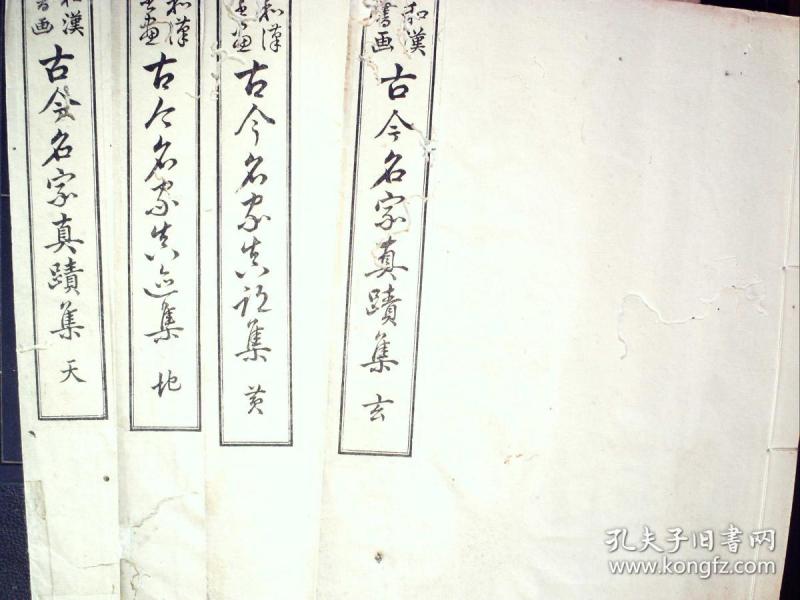 和漢
書画
古今名家真蹟集 天
和漢
書畫
古今名家真迹集 地
和漢
書畫
古今名家真跡集 黄
和漢
書画
古今名家真蹟集 玄
孔夫子旧书网
www.kongfz.com